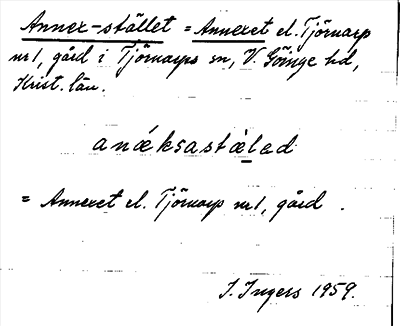 Annex-stället = Annexet el. Tjörnarp
nr 1, gård i Tjörnarps sn, V. Göinge hd,
Krist. län.
anǽksastæ̀lad
= Annexet el. Tjörnarp nr 1, gård.
I. Ingers 1959.